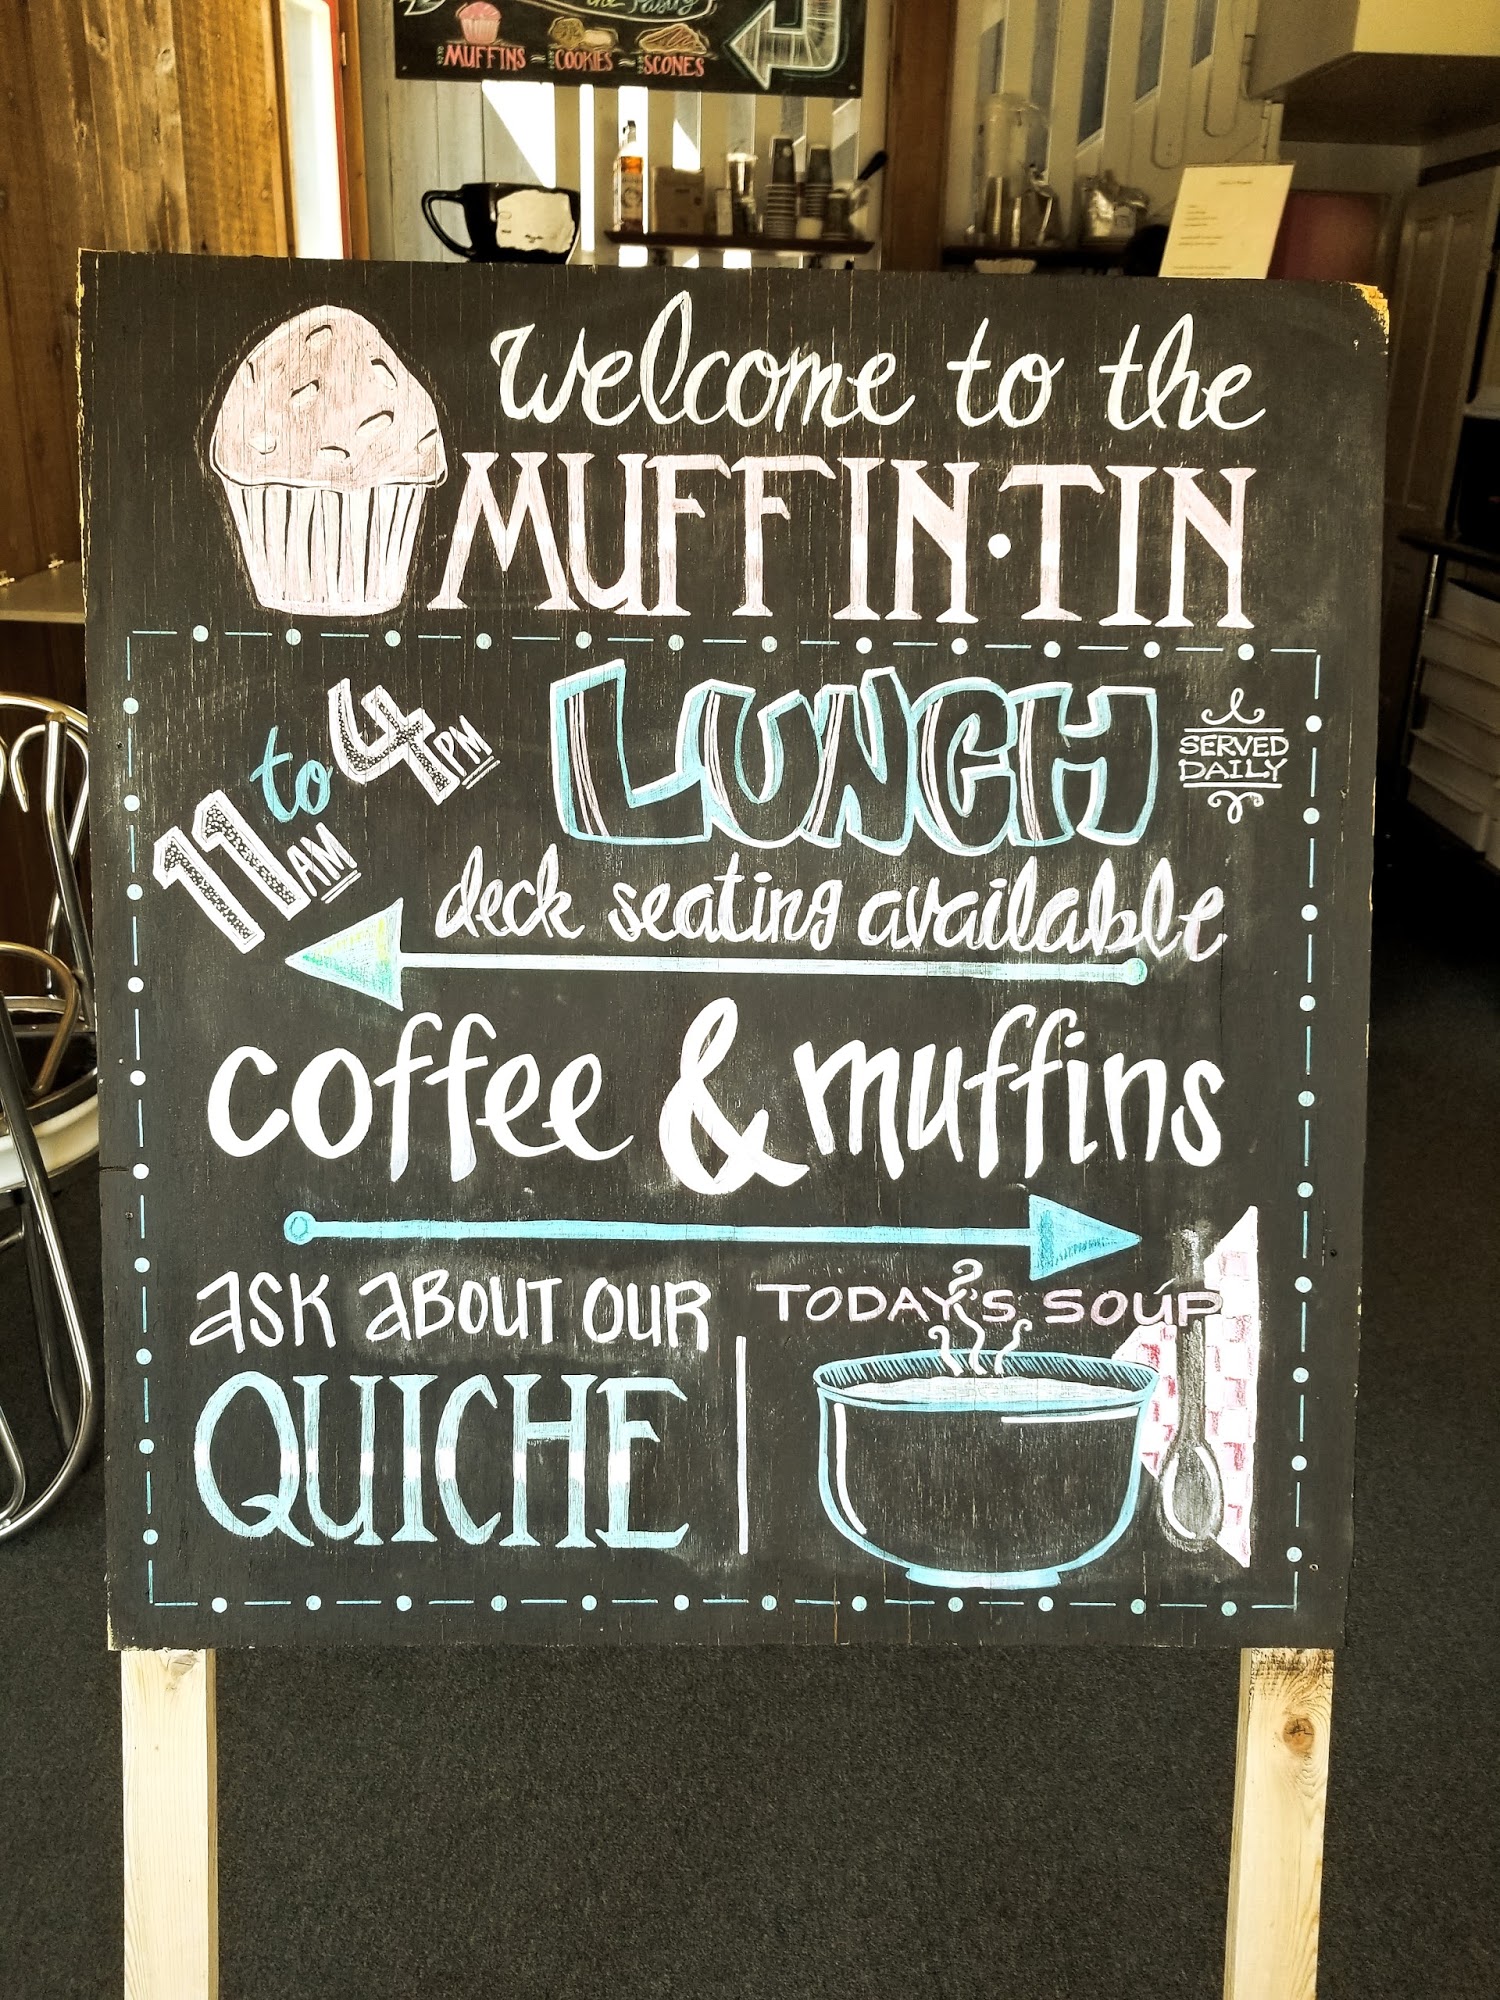 the Pastry
MUFFINS ~ COOKIES ~ SCONES
Welcome to the
MUFFIN·TIN
11AM to 4PM
LUNCH
SERVED
DAILY
deck seating available
coffee & muffins
ASK ABOUT OUR
QUICHE
TODAY'S SOUP